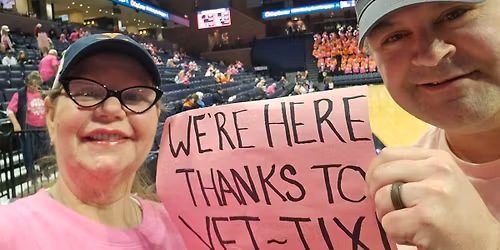 WE'RE HERE
THANKS TO
VET-TIX!